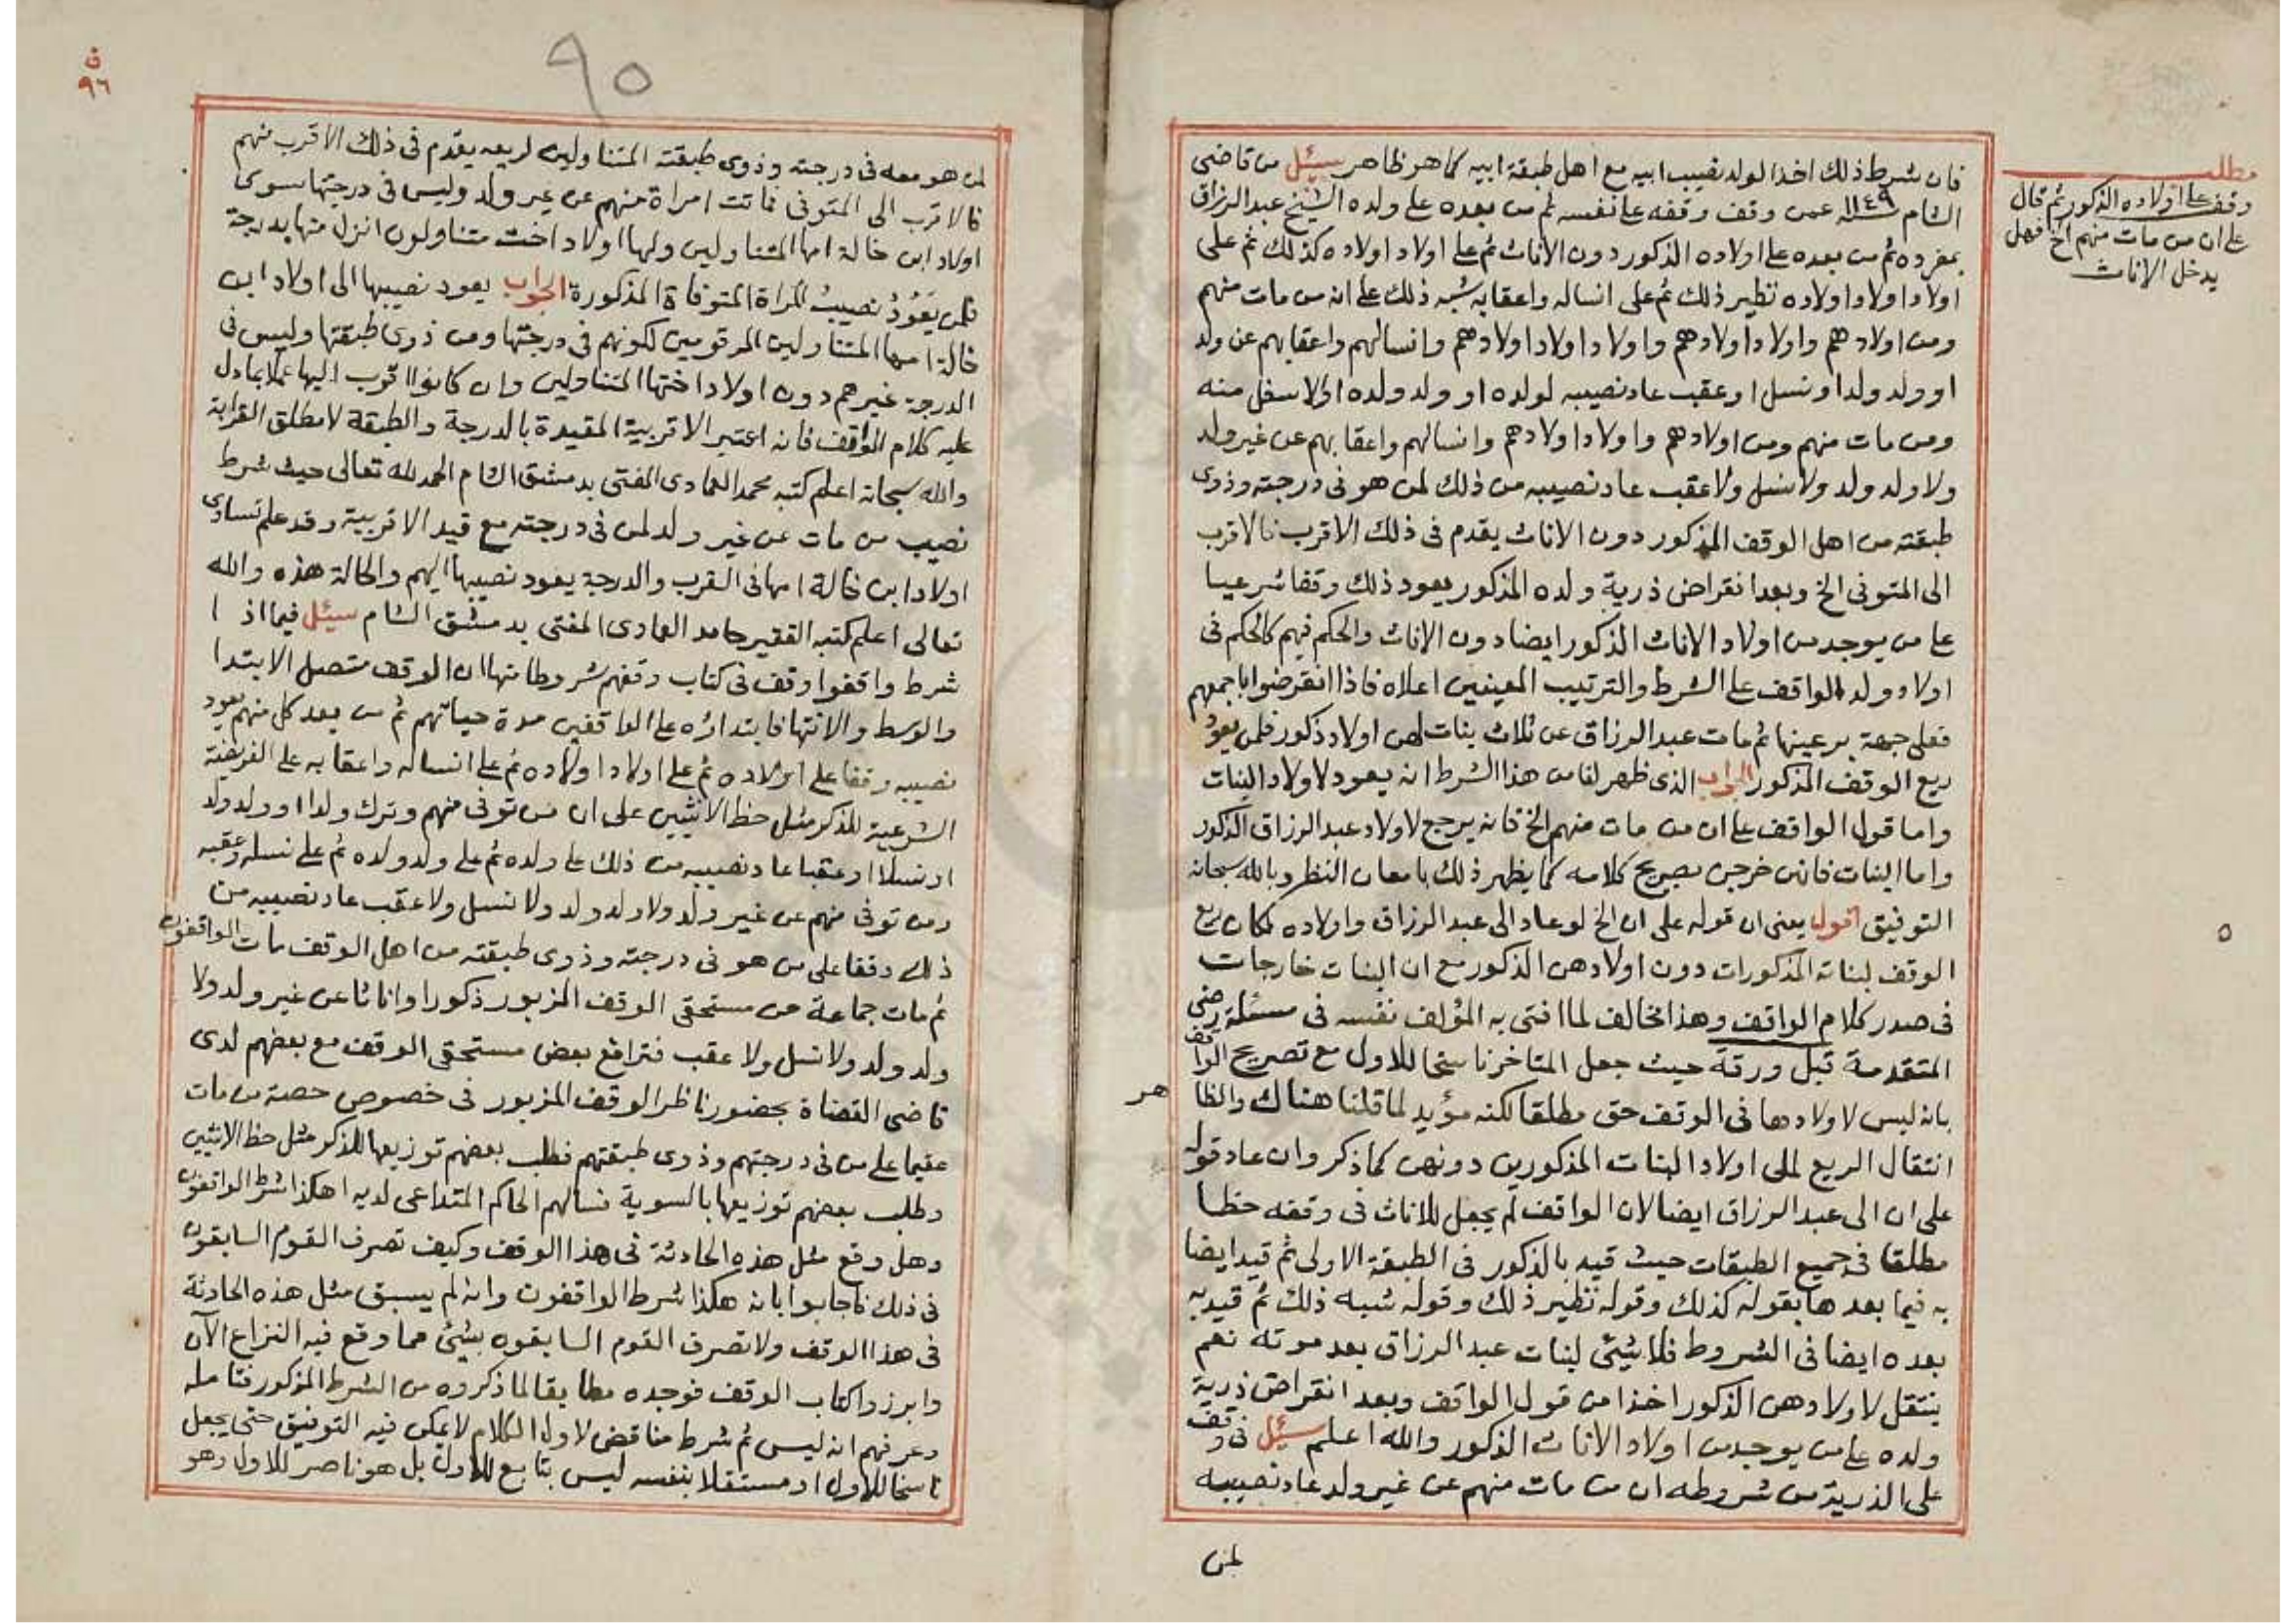 مطلب
وقف على اولاده الذكور ثم قال
على ان من مات منهم الخ فهل
يدخل الاناث
فان شرط ذلك اخذ الولد نصيب ابيه مع اهل طبقة ابيه كما هو ظاهر سئل من قاضي
الشام ١١٤٩ سنة عمن وقف وقفه على نفسه ثم من بعده على ولده الشيخ عبد الرزاق
بمفرده ثم من بعده على اولاده الذكور دون الاناث ثم على اولاد اولاده كذلك ثم على
اولاد اولاد اولاده نظير ذلك ثم على انساله واعقابه شبه ذلك على انه من مات منهم
ومن اولادهم واولاد اولادهم واولاد اولاد اولادهم وانسالهم واعقابهم عن ولد
او ولد ولد او نسل او عقب عاد نصيبه لولده او ولد ولده او الاسفل منه
ومن مات منهم ومن اولادهم واولاد اولادهم وانسالهم واعقابهم عن غير ولد
ولا ولد ولد ولا نسل ولا عقب عاد نصيبه من ذلك لمن هو في درجته وذوى
طبقته من اهل الوقف المذكور دون الاناث يقدم في ذلك الاقرب فالاقرب
الى المتوفى الخ وبعد انقراض ذرية ولده المذكور يعود ذلك وقفا شرعيا
على من يوجد من اولاد الاناث الذكور ايضا دون الاناث والحكم فيهم كالحكم في
اولاد ولد الواقف على الشرط والترتيب المعينين اعلاه فاذا انقرضوا باجمعهم
فعلى جهة بر عينها ثم مات عبد الرزاق عن ثلاث بنات لهن اولاد ذكور فلمن يعود
ريع الوقف المذكور الجواب الذى ظهر لنا من هذا الشرط انه يعود لاولاد البنات
واما قول الواقف على ان من مات منهم الخ فانه يرجع لاولاد عبد الرزاق الذكور
واما البنات فانهن خرجن بصريح كلامه كما يظهر ذلك بامعان النظر وبالله سبحانه
التوفيق اقول يعنى ان قوله على ان الخ لو عاد الى عبد الرزاق واولاده لكان ريع
الوقف لبناته المذكورات دون اولادهن الذكور مع ان البنات خارجات
في صدر كلام الواقف وهذا مخالف لما افتى به المؤلف نفسه في مسئلة رضى
المتقدمة قبل ورقة حيث جعل المتاخر ناسخا للاول مع تصريح الواقف
بانه ليس لاولادها في الوقف حق مطلقا لكنه مؤيد لما قلنا هناك والظا هر
انتقال الريع الى اولاد البنات المذكورين دونهن كما ذكر وان عاد قوله
على ان الى عبد الرزاق ايضا لان الواقف لم يجعل للاناث في وقفه حظا
مطلقا في جميع الطبقات حيث قيد بالذكور في الطبقة الاولى ثم قيد ايضا
به فيما بعدها بقوله كذلك وقوله نظير ذلك وقوله شبه ذلك ثم قيد به
بعده ايضا في الشروط فلا شئ لبنات عبد الرزاق بعد موته نعم
ينتقل لاولادهن الذكور اخذا من قول الواقف وبعد انقراض ذرية
ولده على من يوجد من اولاد الاناث الذكور والله اعلم سئل في وقف
على الذرية من شروطه ان من مات منهم عن غير ولد عاد نصيبه
لمن
٥
٩٠
ف
٩٦
لمن هو معه في درجته وذوى طبقته المتناولين لريعه يقدم في ذلك الاقرب منهم
فالاقرب الى المتوفى فماتت امراة منهم عن غير ولد وليس في درجتها سوى
اولاد ابن خالة امها المتناولين ولها اولاد اخت متناولون انزل منها بدرجة
فلمن يعود نصيب المراة المتوفاة المذكورة الجواب يعود نصيبها الى اولاد ابن
خالة امها المتناولين المرقومين لكونهم في درجتها ومن ذوى طبقتها وليس في
الدرجة غيرهم دون اولاد اختها المتناولين وان كانوا اقرب اليها عملا بما دل
عليه كلام الواقف فانه اعتبر الاقربية المقيدة بالدرجة والطبقة لا مطلق القرابة
والله سبحانه اعلم كتبه محمد العمادى المفتى بدمشق الشام الحمد لله تعالى حيث شرط
نصيب من مات عن غير ولد لمن في درجته مع قيد الاقربية وقد علم تساوى
اولاد ابن خالة امها في القرب والدرجة يعود نصيبها اليهم والحالة هذه والله
تعالى اعلم كتبه الفقير حامد العمادى المفتى بدمشق الشام سئل فيما اذ ا
شرط واقفوا وقف في كتاب وقفهم شروطا منها ان الوقف متصل الابتدا
والوسط والانتها فابتداؤه على الواقفين مدة حياتهم ثم من بعد كل منهم يعود
نصيبه وقفا على اولاده ثم على اولاد اولاده ثم على انساله واعقابه على الفريضة
الشرعية للذكر مثل حظ الانثيين على ان من توفى منهم وترك ولدا او ولد ولد
او نسلا او عقبا عاد نصيبه من ذلك على ولده ثم على ولد ولده ثم على نسله وعقبه
ومن توفى منهم عن غير ولد ولا ولد ولد ولا نسل ولا عقب عاد نصيبه من
ذلك وقفا على من هو في درجته وذوى طبقته من اهل الوقف مات الواقفون
ثم مات جماعة من مستحقى الوقف المزبور ذكورا واناثا عن غير ولد ولا
ولد ولد ولا نسل ولا عقب فترافع بعض مستحقى الوقف مع بعضهم لدى
قاضى القضاة بحضور ناظر الوقف المزبور في خصوص حصة من مات
عقيما على من في درجتهم وذوى طبقتهم فطلب بعضهم توزيعها للذكر مثل حظ الانثيين
وطلب بعضهم توزيعها بالسوية فسالهم الحاكم المتداعى لديه اهكذا شرط الواقفون
وهل وقع مثل هذه الحادثة في هذا الوقف وكيف تصرف القوم السابقون
في ذلك فاجابوا بانه هكذا شرط الواقفون وانه لم يسبق مثل هذه الحادثة
في هذا الوقف ولا تصرف القوم السابقوه بشئ مما وقع فيه النزاع الآن
وابرزوا كتاب الوقف فوجده مطابقا لما ذكروه من الشرط المذكور فتامله
وعرفهم انه ليس ثم شرط مناقض لاول الكلام لا يمكن فيه التوفيق حتى يجعل
ناسخا للاول او مستقلا بنفسه ليس بتابع للاول بل هو ناصر للاول وهو